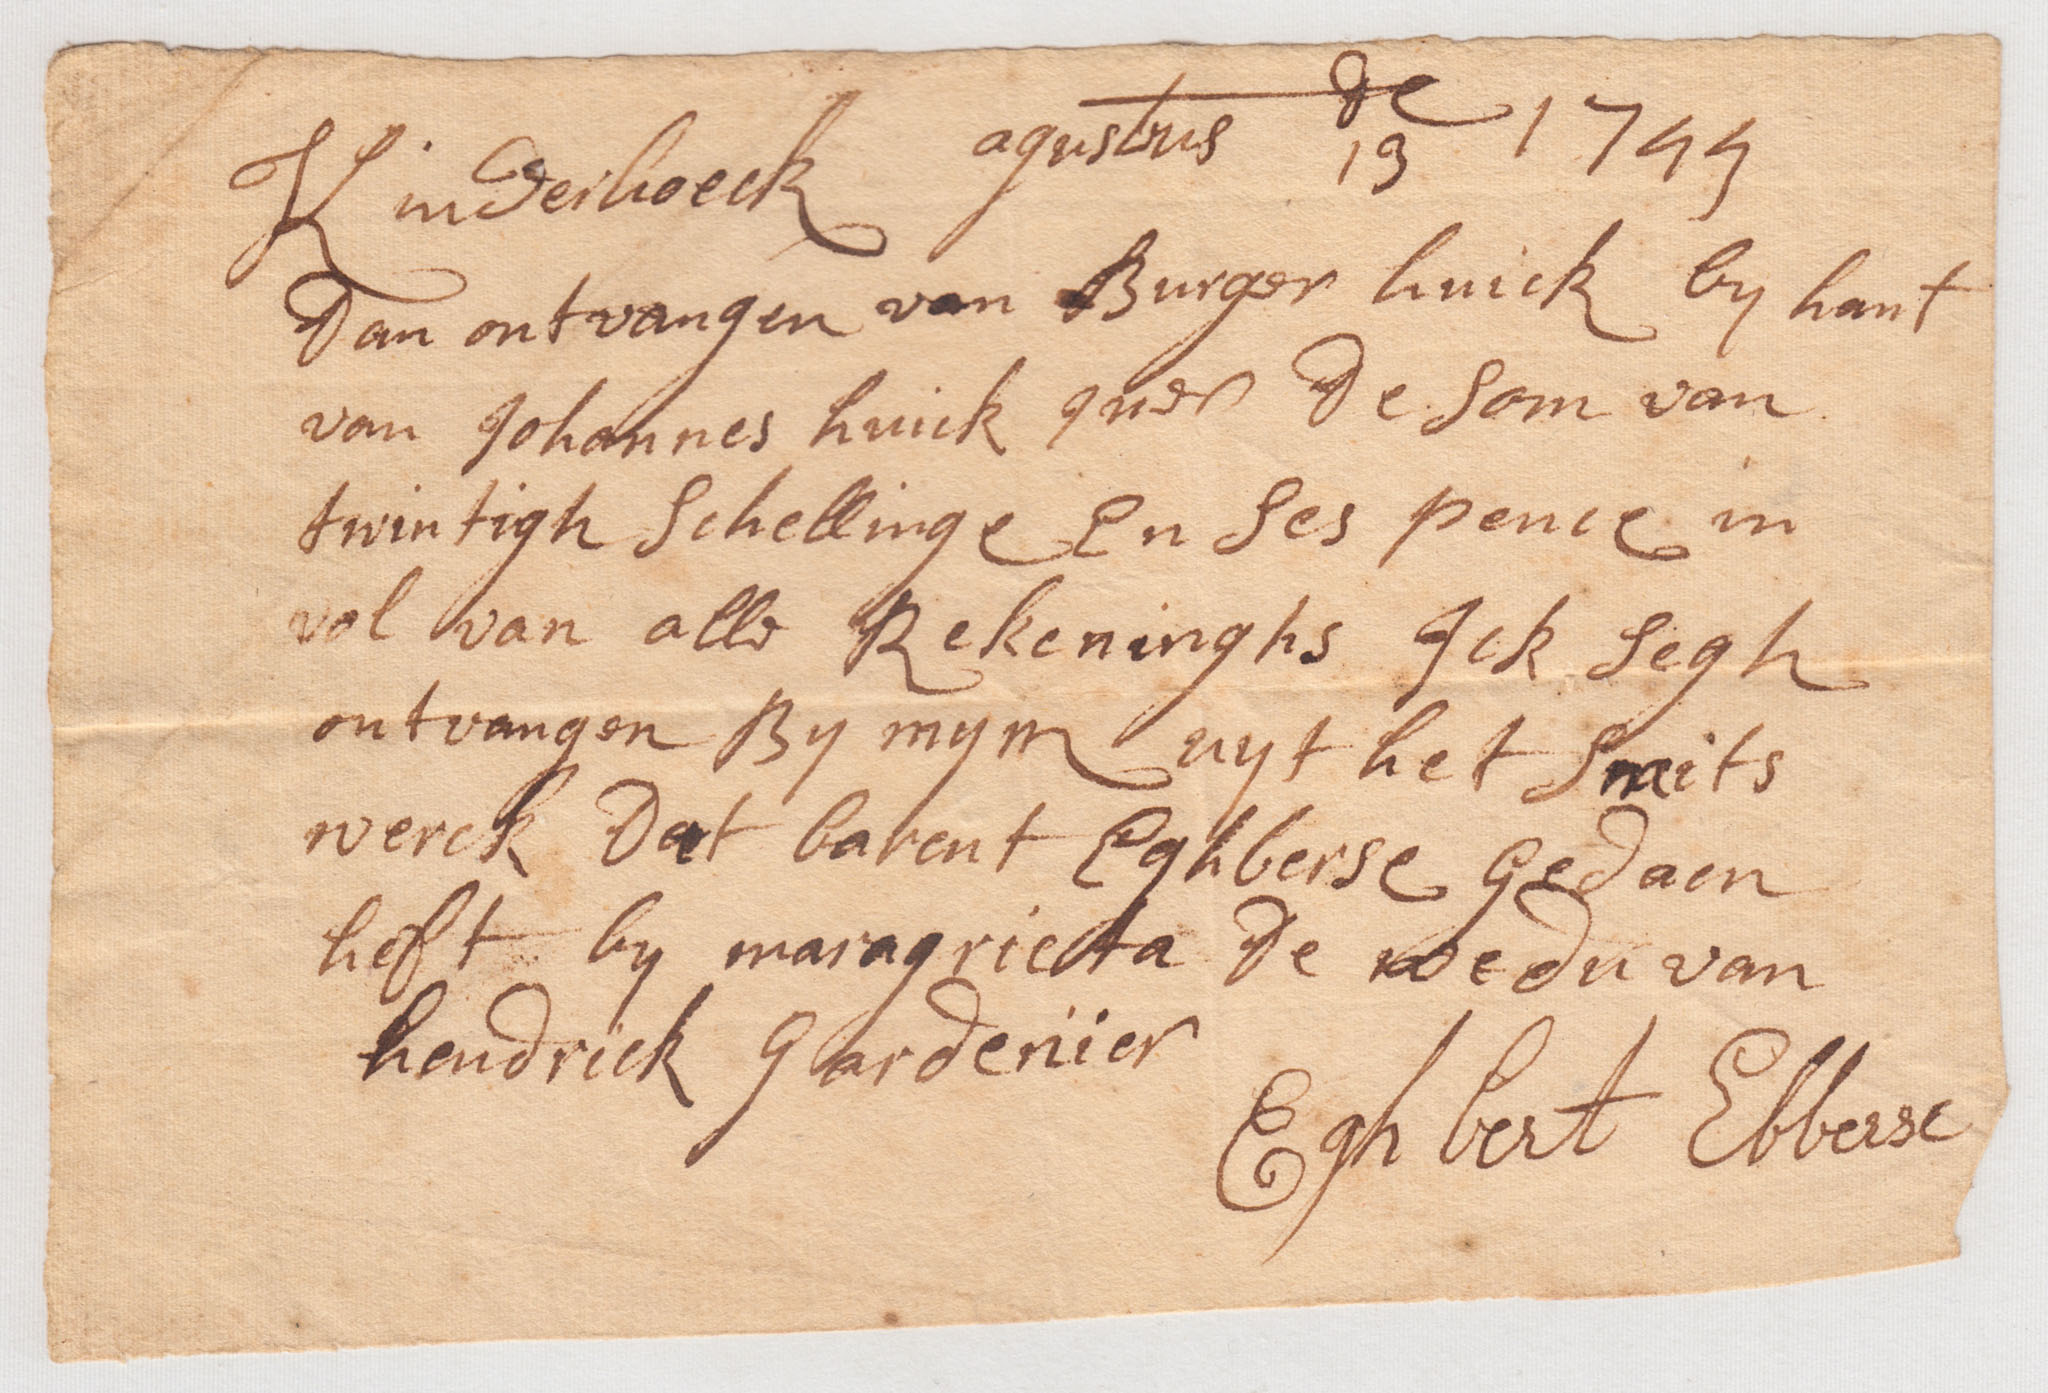 Kinderhoeck agustus de 13 1744
Dan ontvangen van Burger huick by hant
van Johannes huick Juer De Som van
twintigh Schellinge En Ses pence in
vol van alle Rekeninghs Ick Segh
ontvangen By myn uyt het Smits
werck Dat barent Eghberse Gedaen
heft by maragrieta De wedu van
hendrick Gardenier
Eghbert Ebberse